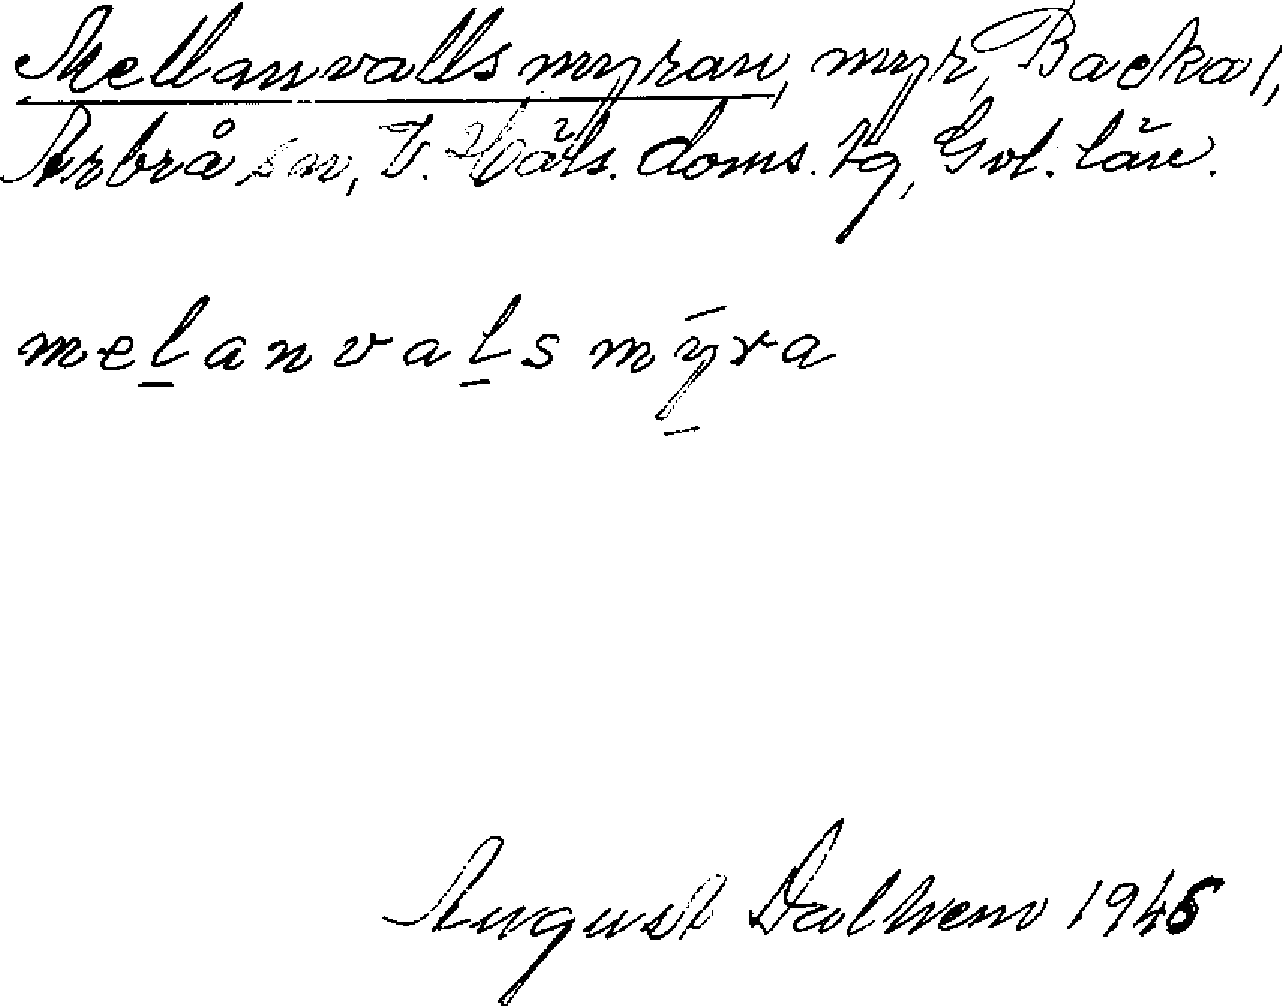 Mellanvallsmyran, myr, Backa 1,
Arbrå sn, V. Häls. doms. tg, Gvl. län.
melanvalsmýra
August Dalhem 1945